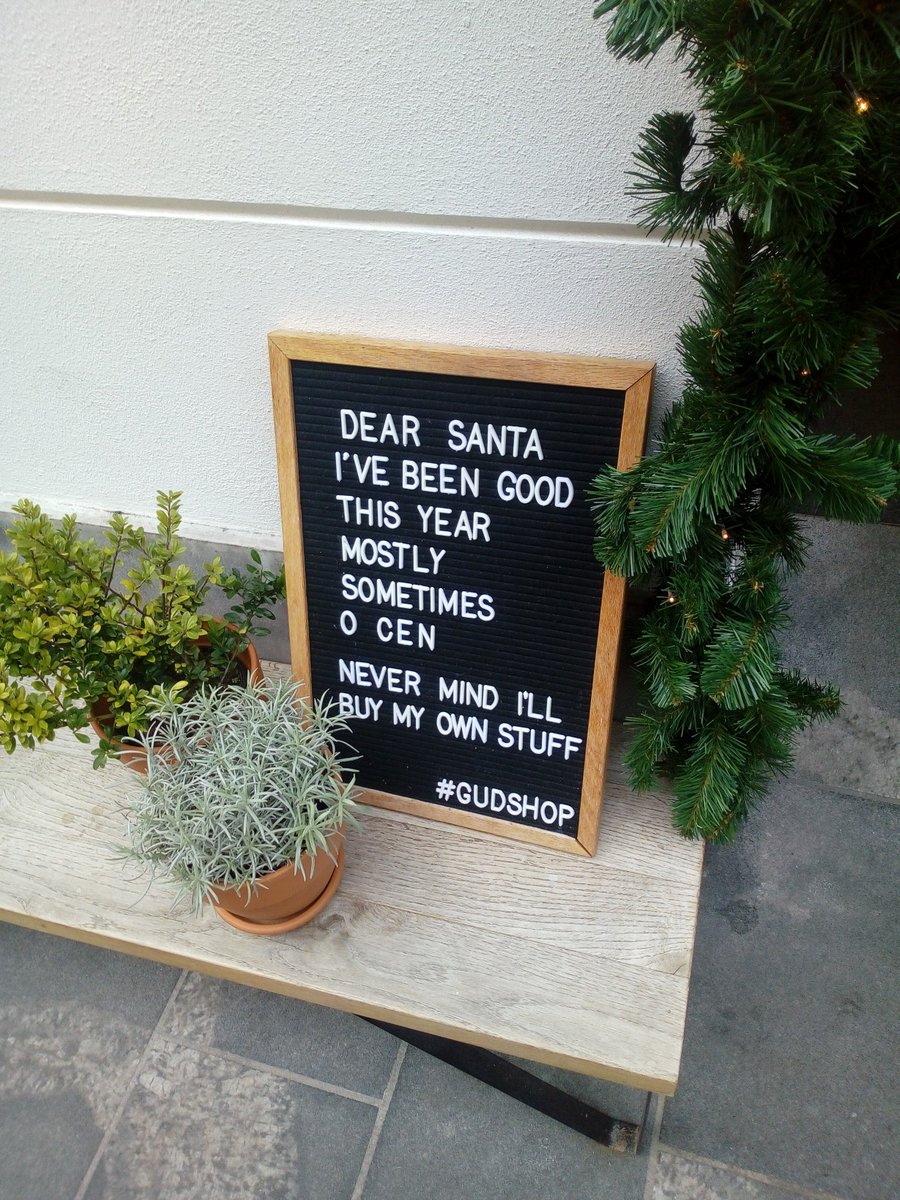 DEAR SANTA
I'VE BEEN GOOD
THIS YEAR
MOSTLY
SOMETIMES
O CEN
NEVER MIND I'LL
BUY MY OWN STUFF
#GUDSHOP